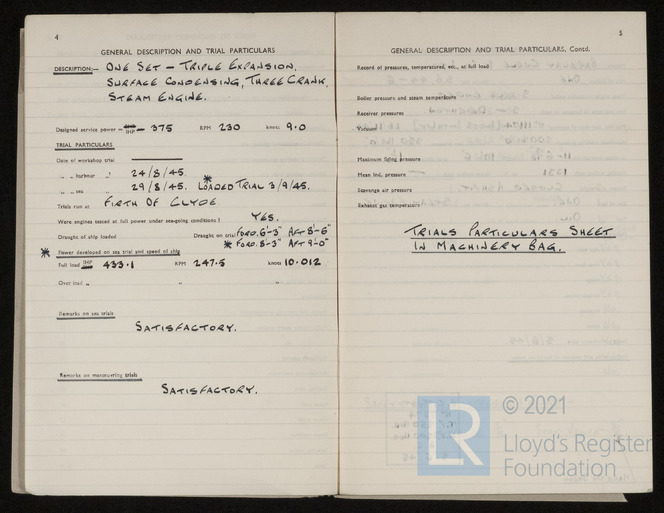 4
GENERAL DESCRIPTION AND TRIAL PARTICULARS
DESCRIPTION:— ONE SET — TRIPLE EXPANSION,
SURFACE CONDENSING, THREE CRANK,
STEAM ENGINE.
Designed service power — IHP — 375 RPM 230 knots 9.0
TRIAL PARTICULARS
Date of workshop trial
„ „ harbour „ 24/8/45.
„ „ sea „ 29/8/45. * LOADED TRIAL 3/9/45.
Trials run at FIRTH OF CLYDE
Were engines tested at full power under sea-going conditions? YES.
Draught of ship loaded Draught on trial FORD. 6'-3" AFT 8'-6"
* FORD. 8'-3" AFT 9'-0"
* Power developed on sea trial and speed of ship
Full load IHP 433.1 RPM 247.5 knots 10.012
Over load „ „ „
Remarks on sea trials
SATISFACTORY.
Remarks on manœuvring trials
SATISFACTORY.
5
GENERAL DESCRIPTION AND TRIAL PARTICULARS, Contd.
Record of pressures, temperatures, etc., at full load
Boiler pressure and steam temperature
Receiver pressures
Vacuum
Maximum firing pressure
Mean ind. pressure
Scavenge air pressure
Exhaust gas temperature
TRIALS PARTICULARS SHEET
IN MACHINERY BAG.
LR
© 2021
Lloyd's Register
Foundation